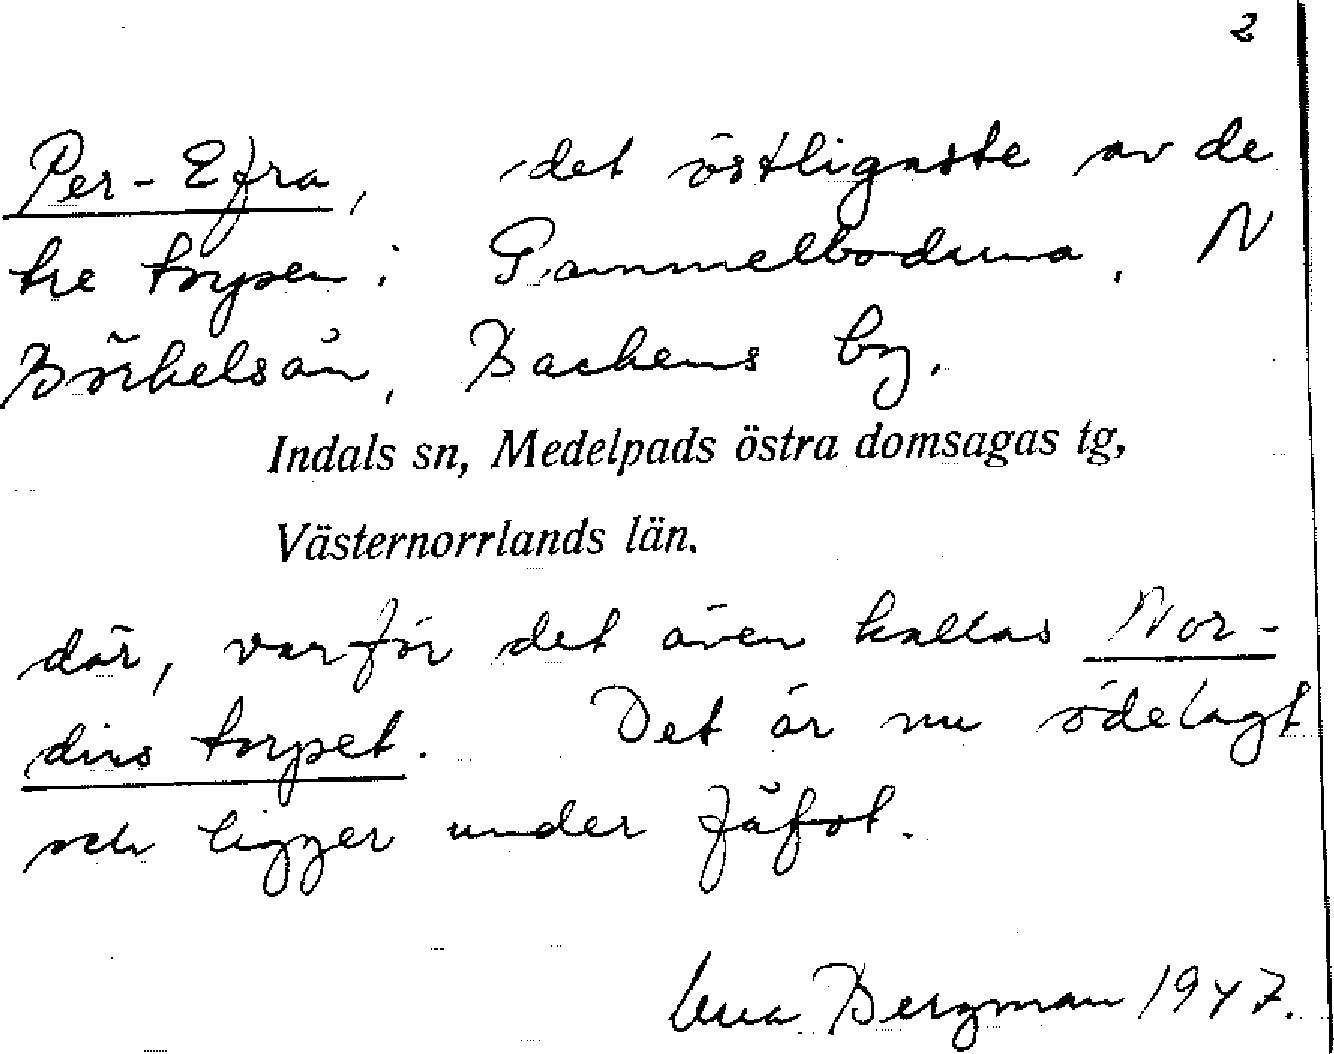 2
Per-Efra, det östligaste av de
tre torpen i Gammelbodarna, N
Börkelsån, Backens by.
Indals sn, Medelpads östra domsagas tg,
Västernorrlands län.
där, varför det även kallas Nor-
dins torpet. Det är nu ödelagt
och ligger under fäfot.
Bergman 1947.